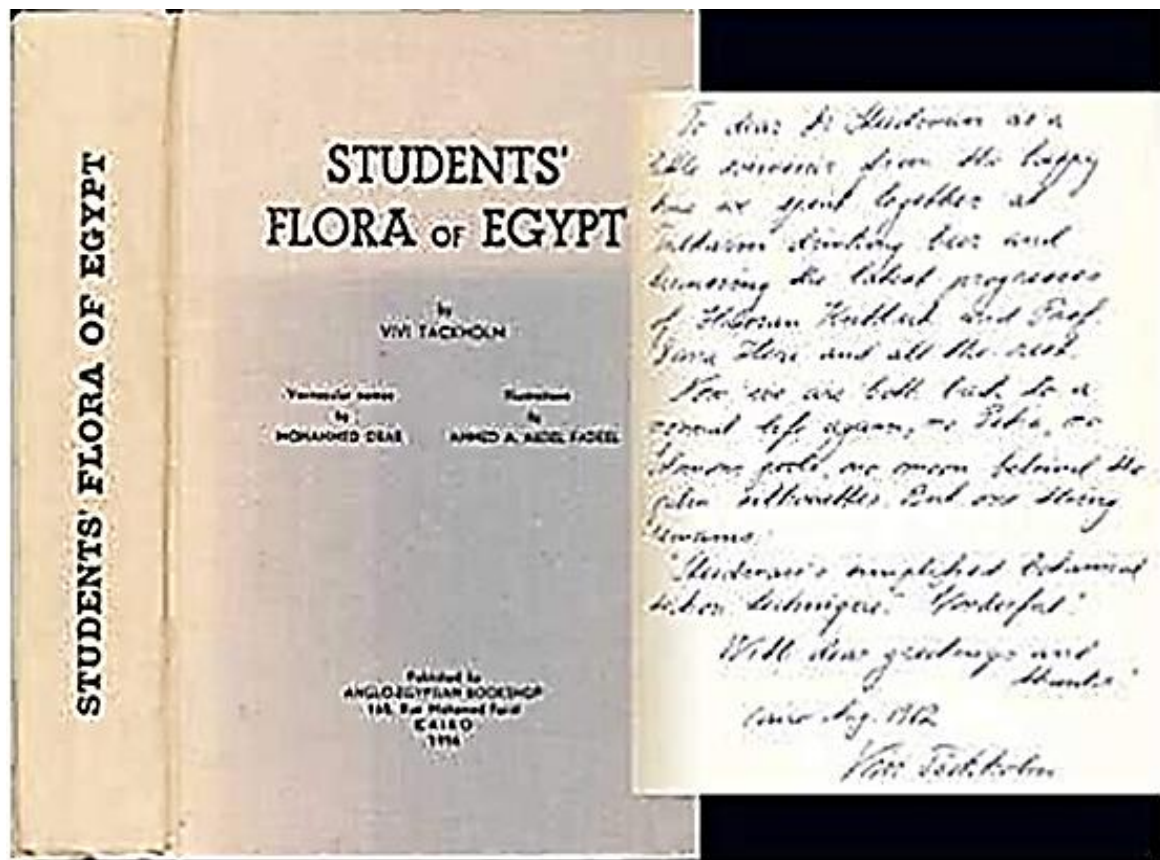 STUDENTS' FLORA OF EGYPT
STUDENTS'
FLORA OF EGYPT
by
VIVI TACKHOLM
Vernacular names
by
MOHAMMED DRAR
Illustrations
by
AHMED A. ABDEL FADEEL
Published by
ANGLO-EGYPTIAN BOOKSHOP
165, Rue Mohamed Farid
CAIRO
1956
To dear Dr as a
souvenir from the happy
time we spent together at
drinking beer and
the latest progresses
of and Prof.
and all the rest.
Now we are both back to a
normal life again, no Petra, no
no moon behind the
silhouettes. But one thing
remains:
simplified botanical
technique." Wonderful!
With dear greetings and
thanks
Cairo Aug. 1962
Vivi Täckholm